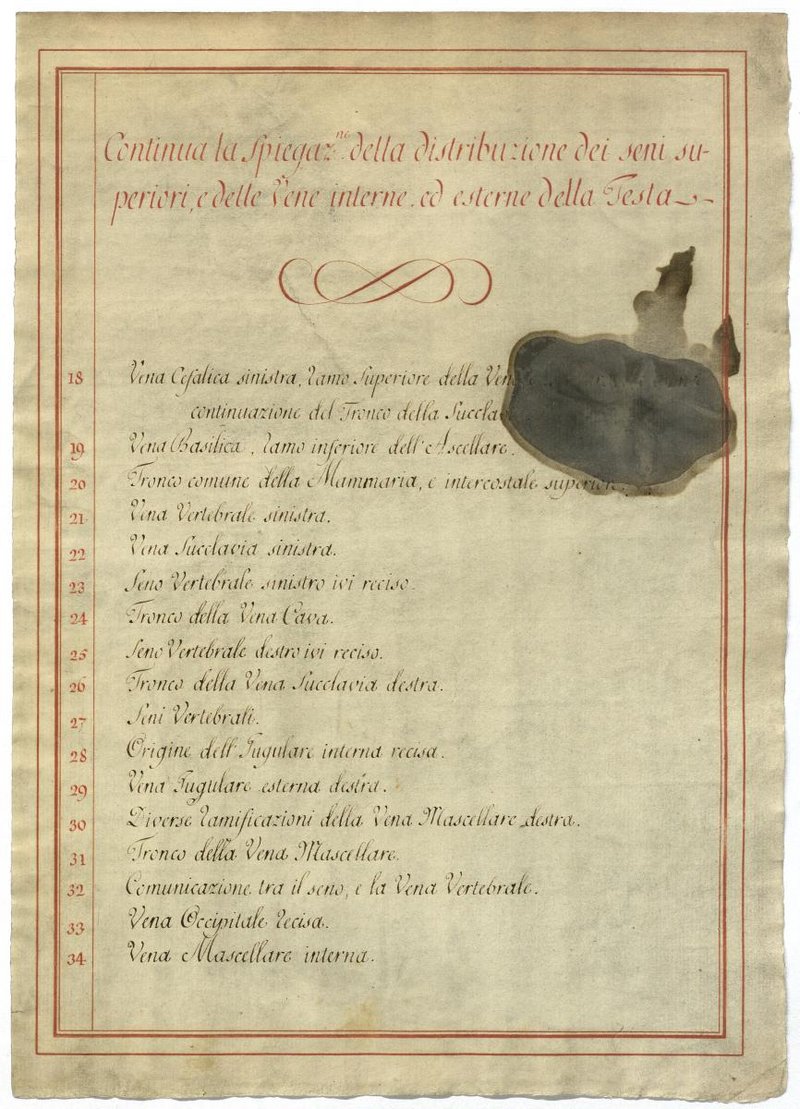 Continua la Spiegaz.ne della distribuzione dei seni su-
periori, e delle Vene interne, ed esterne della Testa
18 Vena Cefalica sinistra, ramo Superiore della
continuazione del Tronco della
19 Vena Basilica, ramo inferiore dell'Ascellare.
20 Tronco comune della Mammaria, e intercostale superiore.
21 Vena Vertebrale sinistra.
22 Vena Succlavia sinistra.
23 Seno Vertebrale sinistro ivi reciso.
24 Tronco della Vena Cava.
25 Seno Vertebrale destro ivi reciso.
26 Tronco della Vena Succlavia destra.
27 Seni Vertebrali.
28 Origine dell'Jugulare interna recisa.
29 Vena Jugulare esterna destra.
30 Diverse ramificazioni della Vena Mascellare destra.
31 Tronco della Vena Mascellare.
32 Comunicazione tra il seno, e la Vena Vertebrale.
33 Vena Occipitale recisa.
34 Vena Mascellare interna.